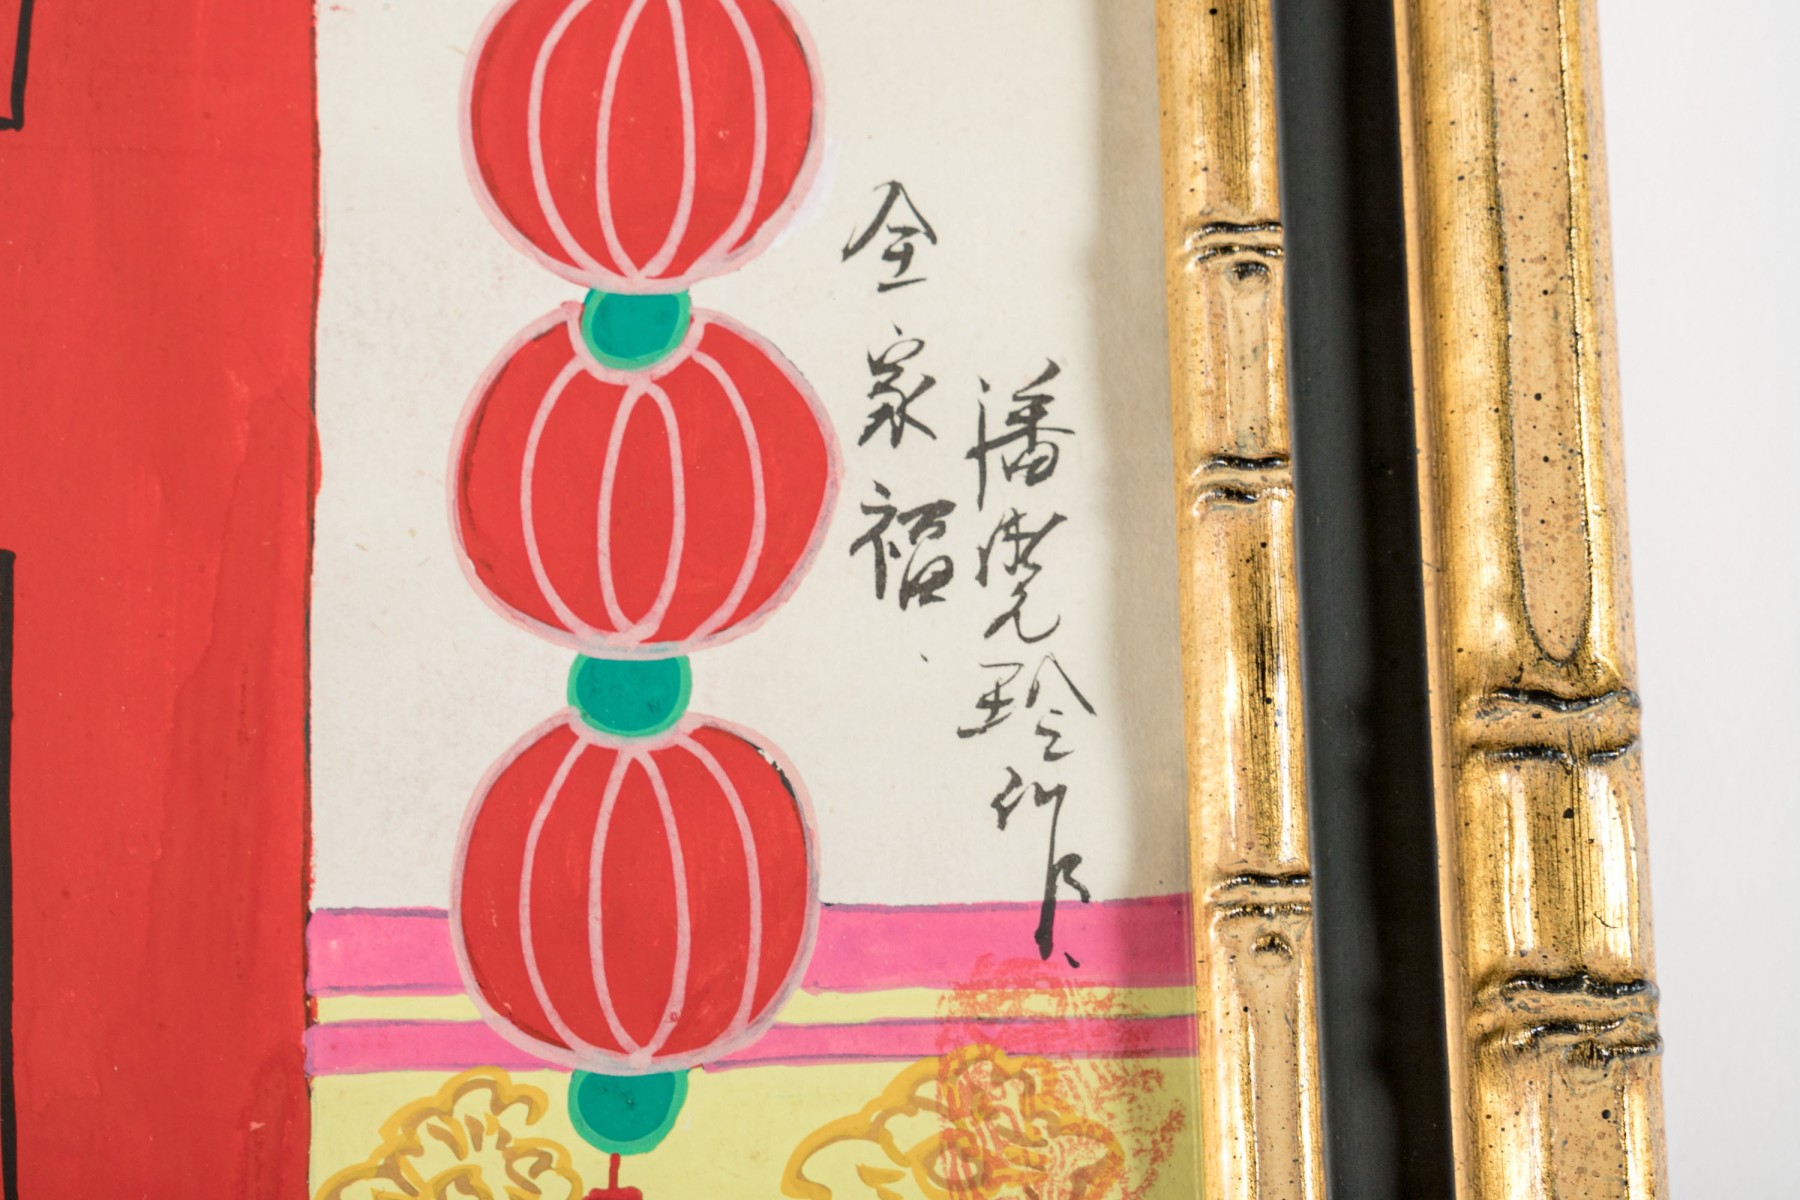 全家福
潘晓玲作